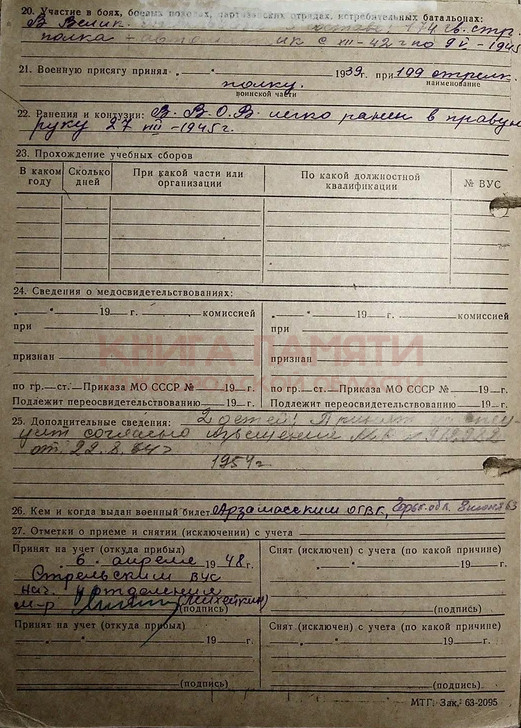 20. Участие в боях, боевых походах, партизанских отрядах, истребительных батальонах:
В Велик. 174 гв. стр.
полка - с VIII-42 г по 9 V-1945
21. Военную присягу принял „ . " 1939 г. при 199 отрелк.
наименование
полку.
воинской части
22. Ранения и контузии: В. В. О. В. легко ранен в правую
руку 27 III-1945 г.
23. Прохождение учебных сборов
В каком году | Сколько дней | При какой части или организации | По какой должностной квалификации | № ВУС
24. Сведения о медосвидетельствованиях:
„ . " 19 г. комиссией „ . " 19 г. комиссией
при при
признан признан
КНИГА ПАМЯТИ
по гр. ст. Приказа МО СССР № 19 г. по гр. ст. Приказа МО СССР № 19 г.
Подлежит переосвидетельствованию Подлежит переосвидетельствованию
25. Дополнительные сведения: 2 детей!
учет согласно извещение
от 22.
1954 г.
26. Кем и когда выдан военный билет Арзамасским ОГВК, Горьк. обл. 63
27. Отметки о приеме и снятии (исключении) с учета
Принят на учет (откуда прибыл) Снят (исключен) с учета (по какой причине)
„ 6. " апреля 1948 г. „ . " 19 г.
Стрельским ВУС
Нач. 4 отделения
м-р (Михейкин)
(подпись) (подпись)
Принят на учет (откуда прибыл) Снят (исключен) с учета (по какой причине)
„ . " 19 г. „ . " 19 г.
(подпись) (подпись)
МТГ. Зак. 63-2095